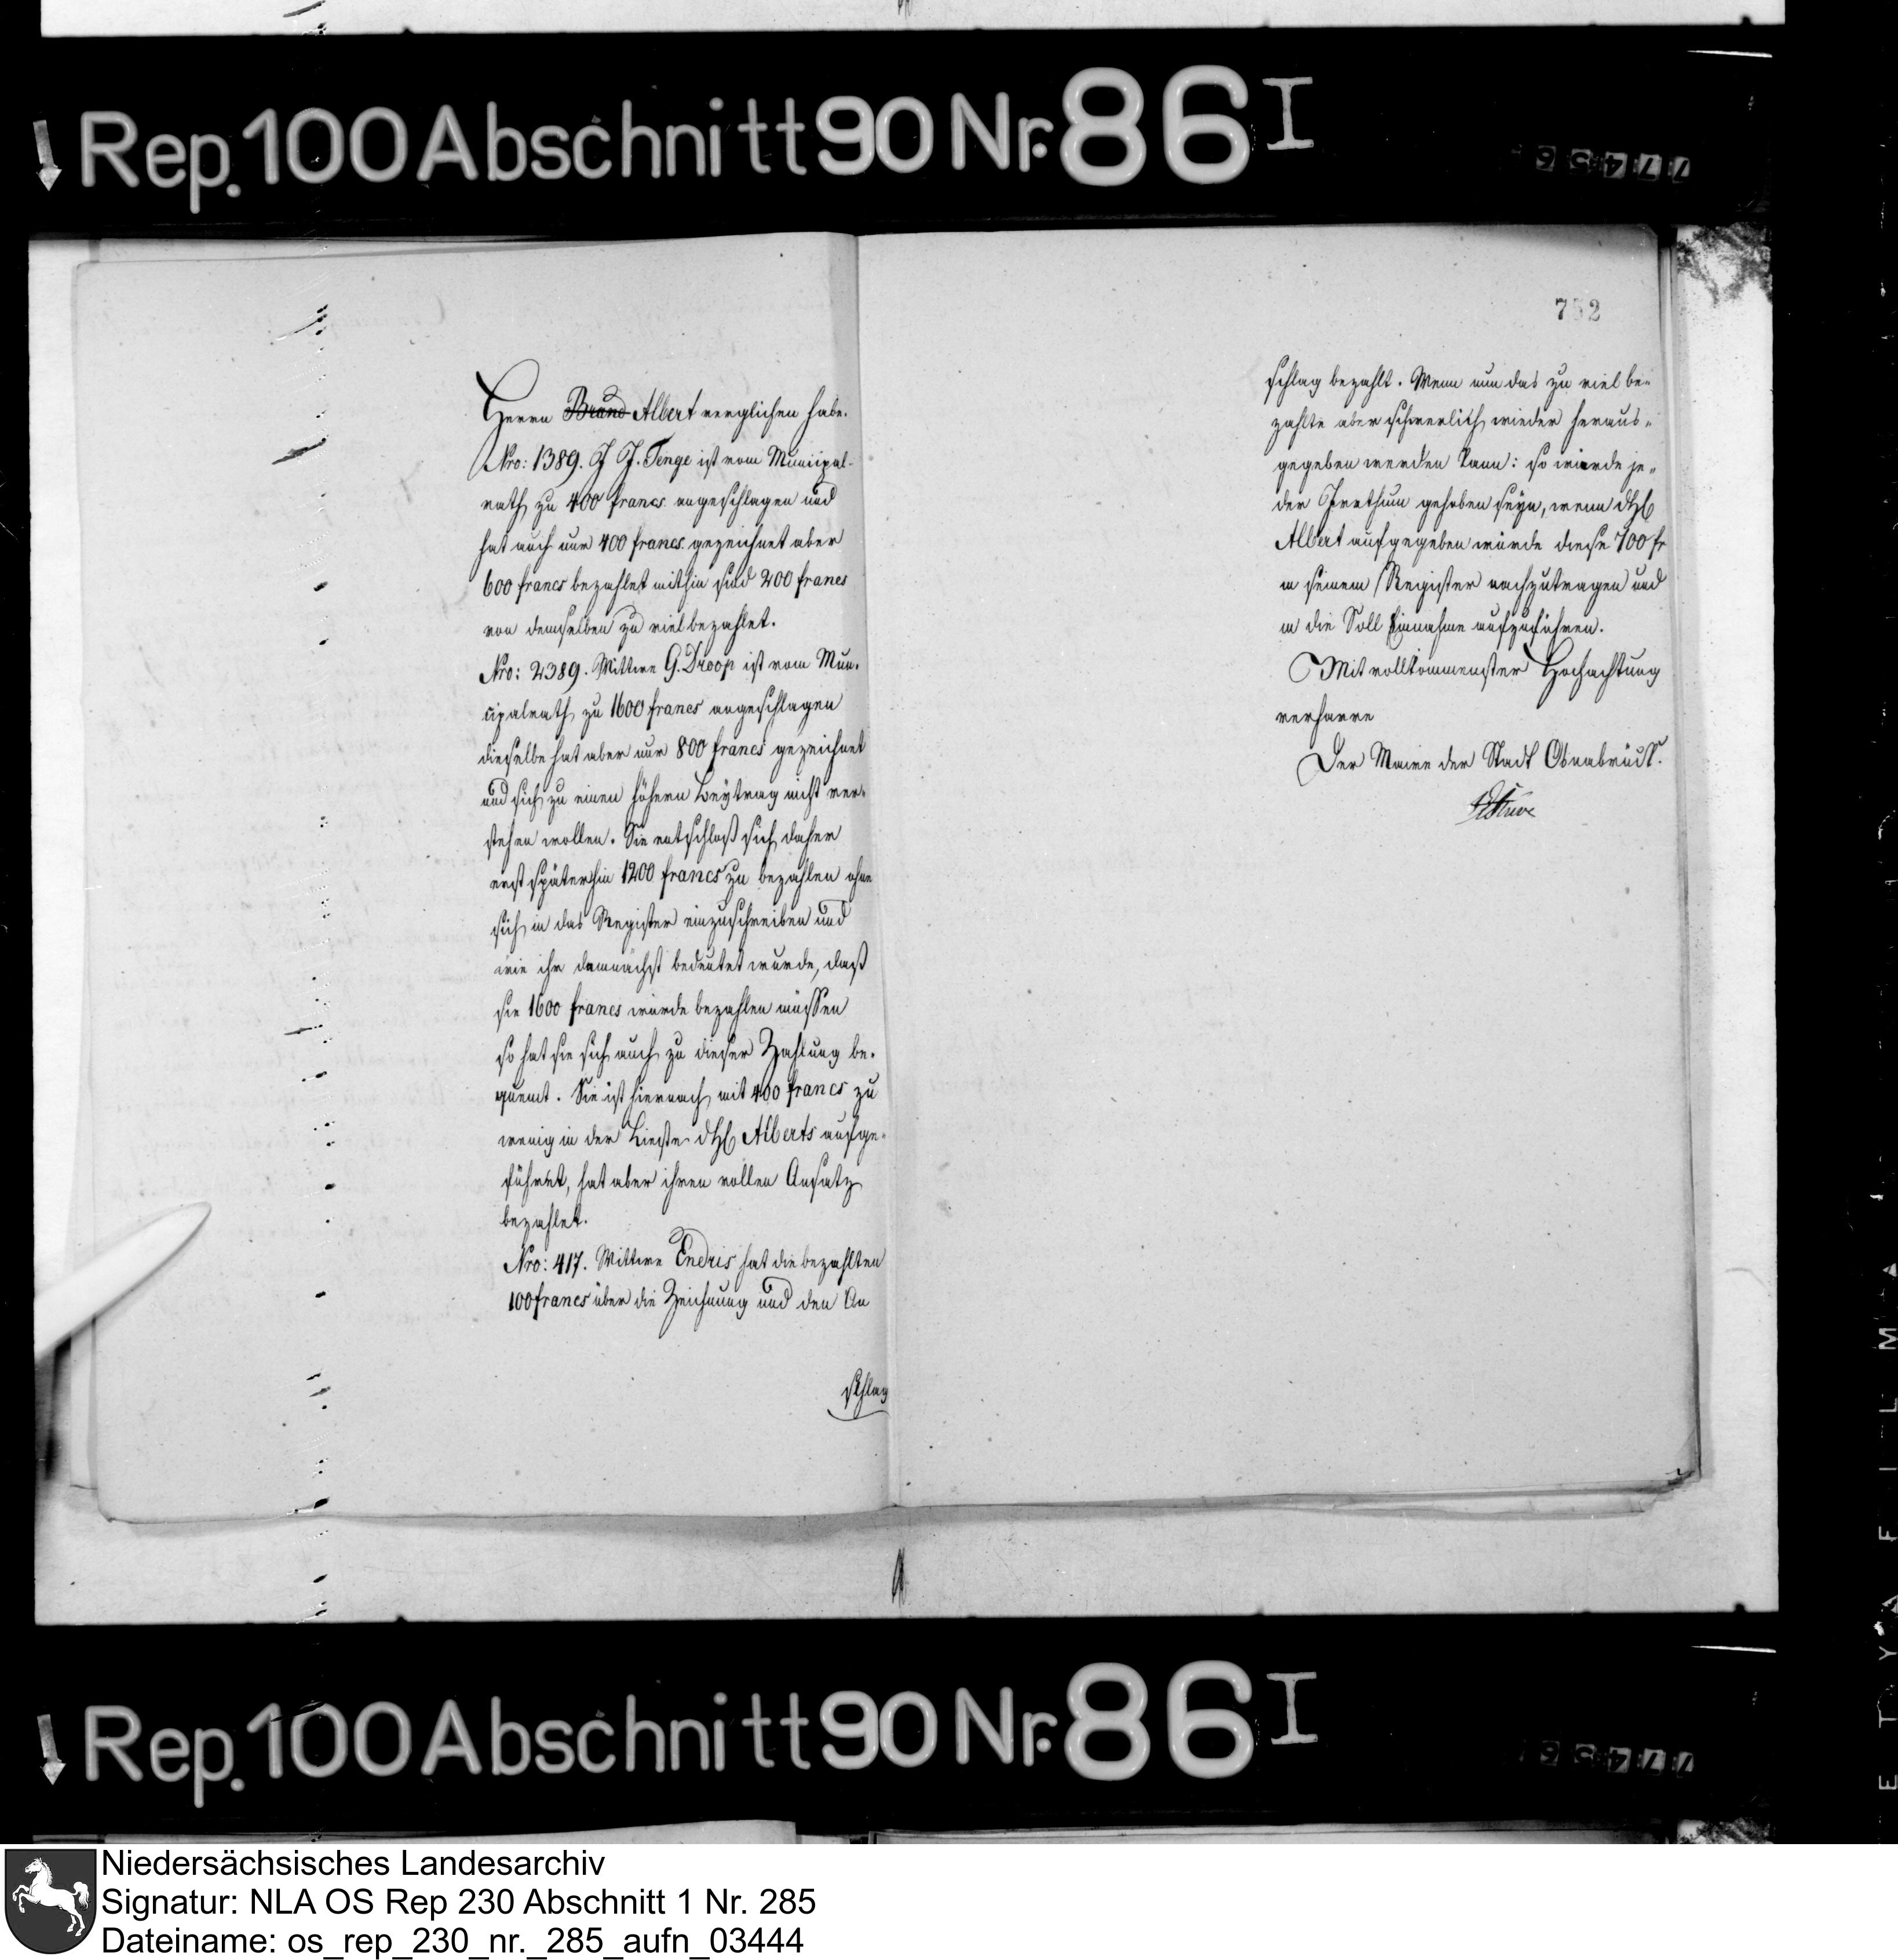 Rep. 100 Abschnitt 90 Nr. 86 I
752
Herrn Brand Albert verglichen habe.
Nro: 1389. J J. Tenge ist vom Municipal-
rath zu 400 francs angeschlagen und
hat auch nur 400 francs gezeichnet aber
600 francs bezahlet mithin sind 200 francs
von demselben zu viel bezahlet.
Nro: 2389. Wittwe G. Droop ist vom Muni-
cipalrath zu 1600 francs angeschlagen
dieselbe hat aber nur 800 francs gezeichnet
und sich zu einen höhern Beytrag nicht ver-
stehen wollen. Sie entschloß sich daher
erst späterhin 1200 francs zu bezahlen ohne
sich in das Register einzuschreiben und
wie ihr demnächst bedeutet wurde, daß
sie 1600 francs würde bezahlen müssen
so hat sie sich auch zu dieser Zahlung be-
quemt. Sie ist hiernach mit 400 francs zu
wenig in der Lieste Alberts aufge-
führet, hat aber ihren vollen Ansatz
bezahlet.
Nro: 417. Wittwe Endris hat die bezahlten
100 francs über die Zeichnung und den An
schlag
schlag bezahlt. Wenn nun das zu viel be-
zahlte aber schwerlich wieder heraus-
gegeben werden kann: so würde je-
der Irrthum gehoben seyn, wenn
Albert aufgegeben würde diese 700 fr
in seinem Register nachzutragen und
in die Soll Einnahme aufzuführen.
Mit vollkommenster Hochachtung
verharre
Der Maire der Stadt Osnabrück.
Stüve
Rep. 100 Abschnitt 90 Nr. 86 I
Niedersächsisches Landesarchiv
Signatur: NLA OS Rep 230 Abschnitt 1 Nr. 285
Dateiname: os_rep_230_nr._285_aufn_03444